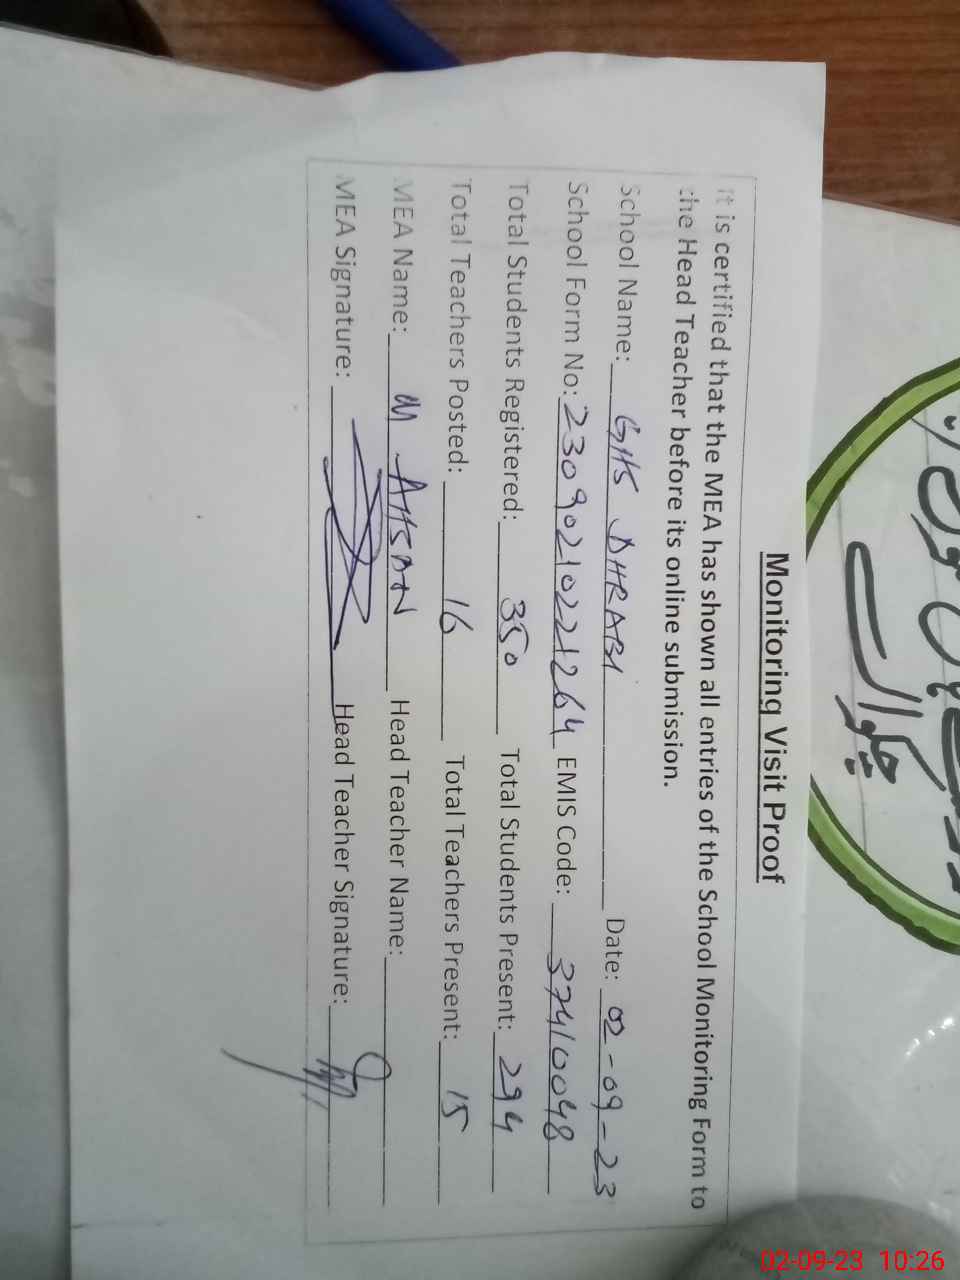 Monitoring Visit Proof
It is certified that the MEA has shown all entries of the School Monitoring Form to
the Head Teacher before its online submission.
School Name: GHS DHRABI Date: 02-09-23
School Form No: 23090210221264 EMIS Code: 37410048
Total Students Registered: 350 Total Students Present: 294
Total Teachers Posted: 16 Total Teachers Present: 15
MEA Name: M AHSAN Head Teacher Name:
MEA Signature: Head Teacher Signature:
چکوال
02-09-23 10:26